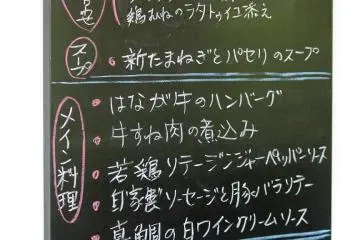 鶏むねのラタトゥイユ添え
スープ
新たまねぎとパセリのスープ
メイン料理
はなが牛のハンバーグ
牛すね肉の煮込み
若鶏ソテージンジャーペッパーソース
自家製ソーセージと豚バラソテー
真鯛の白ワインクリームソース